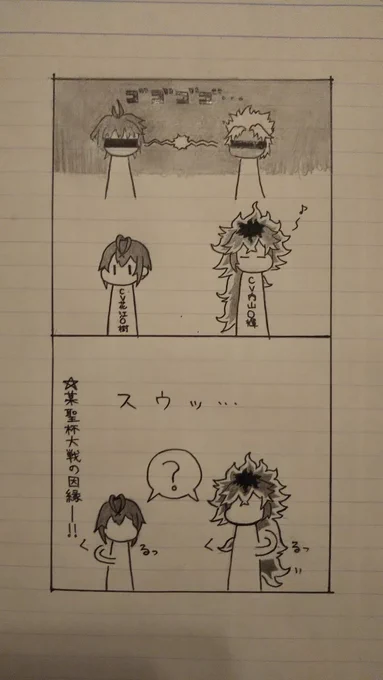 ゴゴゴゴ...
♪
CV花江〇樹
CV内山〇輝
スウッ…
?
くるっ
くるっ
☆某聖杯大戦の因縁ー!!